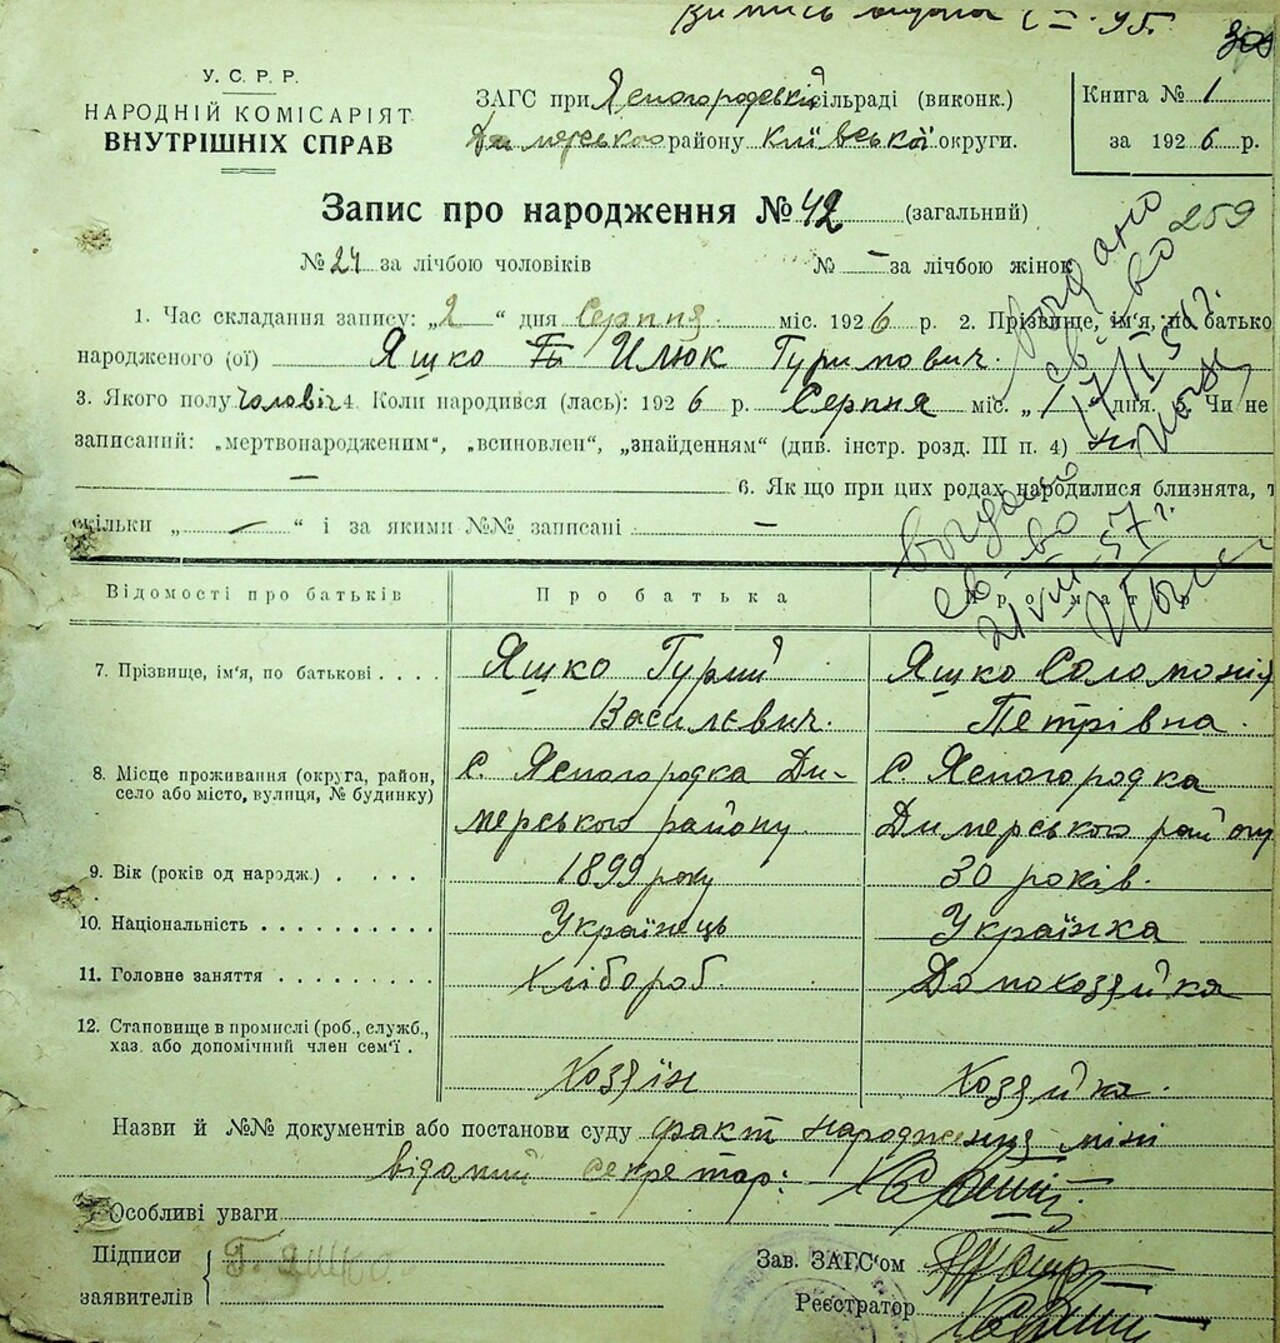 У.С.Р.Р.
НАРОДНІЙ КОМІСАРІЯТ
ВНУТРІШНІХ СПРАВ
ЗАГС при Ясногородській сільраді (виконк.)
Димерського району Київської округи.
Книга № 1
за 1926 р.
Запис про народження № 42 (загальний)
259
№ 24 за лічбою чоловіків № – за лічбою жінок
1. Час складання запису: „2“ дня Серпня міс. 1926 р. 2. Прізвище, ім'я, по батько
народженого (ої) Яшко Илюк Гуримович.
3. Якого полу чоловіч 4. Коли народився (лась): 1926 р. Серпня міс. „1 дня. 5. Чи не
записаний: „мертвонародженим“, „всиновлен“, „знайденням“ (див. інстр. розд. III п. 4) ні
– 6. Якщо при цих родах народилися близнята, т
скільки „–“ і за якими №№ записані –
Відомості про батьків Про батька Про матір
7. Прізвище, ім'я, по батькові . . . . Яшко Гурий Яшко Соломонія
Василєвич. Петрівна.
8. Місце проживання (округа, район, с. Ясногородка Ди- с. Ясногородка
село або місто, вулиця, № будинку) мерського району Димерського району
9. Вік (років од народж.) . . . . 1899 року 30 років.
10. Національність . . . . . . . . . . Українець Українка
11. Головне заняття . . . . . . . . . Хлібороб. Домохозяйка
12. Становище в промислі (роб., служб.,
хаз. або допомічний член сем'ї . Хозяїн Хозяйка.
Назви й №№ документів або постанови суду факт народження міні
відомий секретар:
Особливі уваги
Підписи Г. Яшко
заявителів
Зав. ЗАГС'ом
Реєстратор